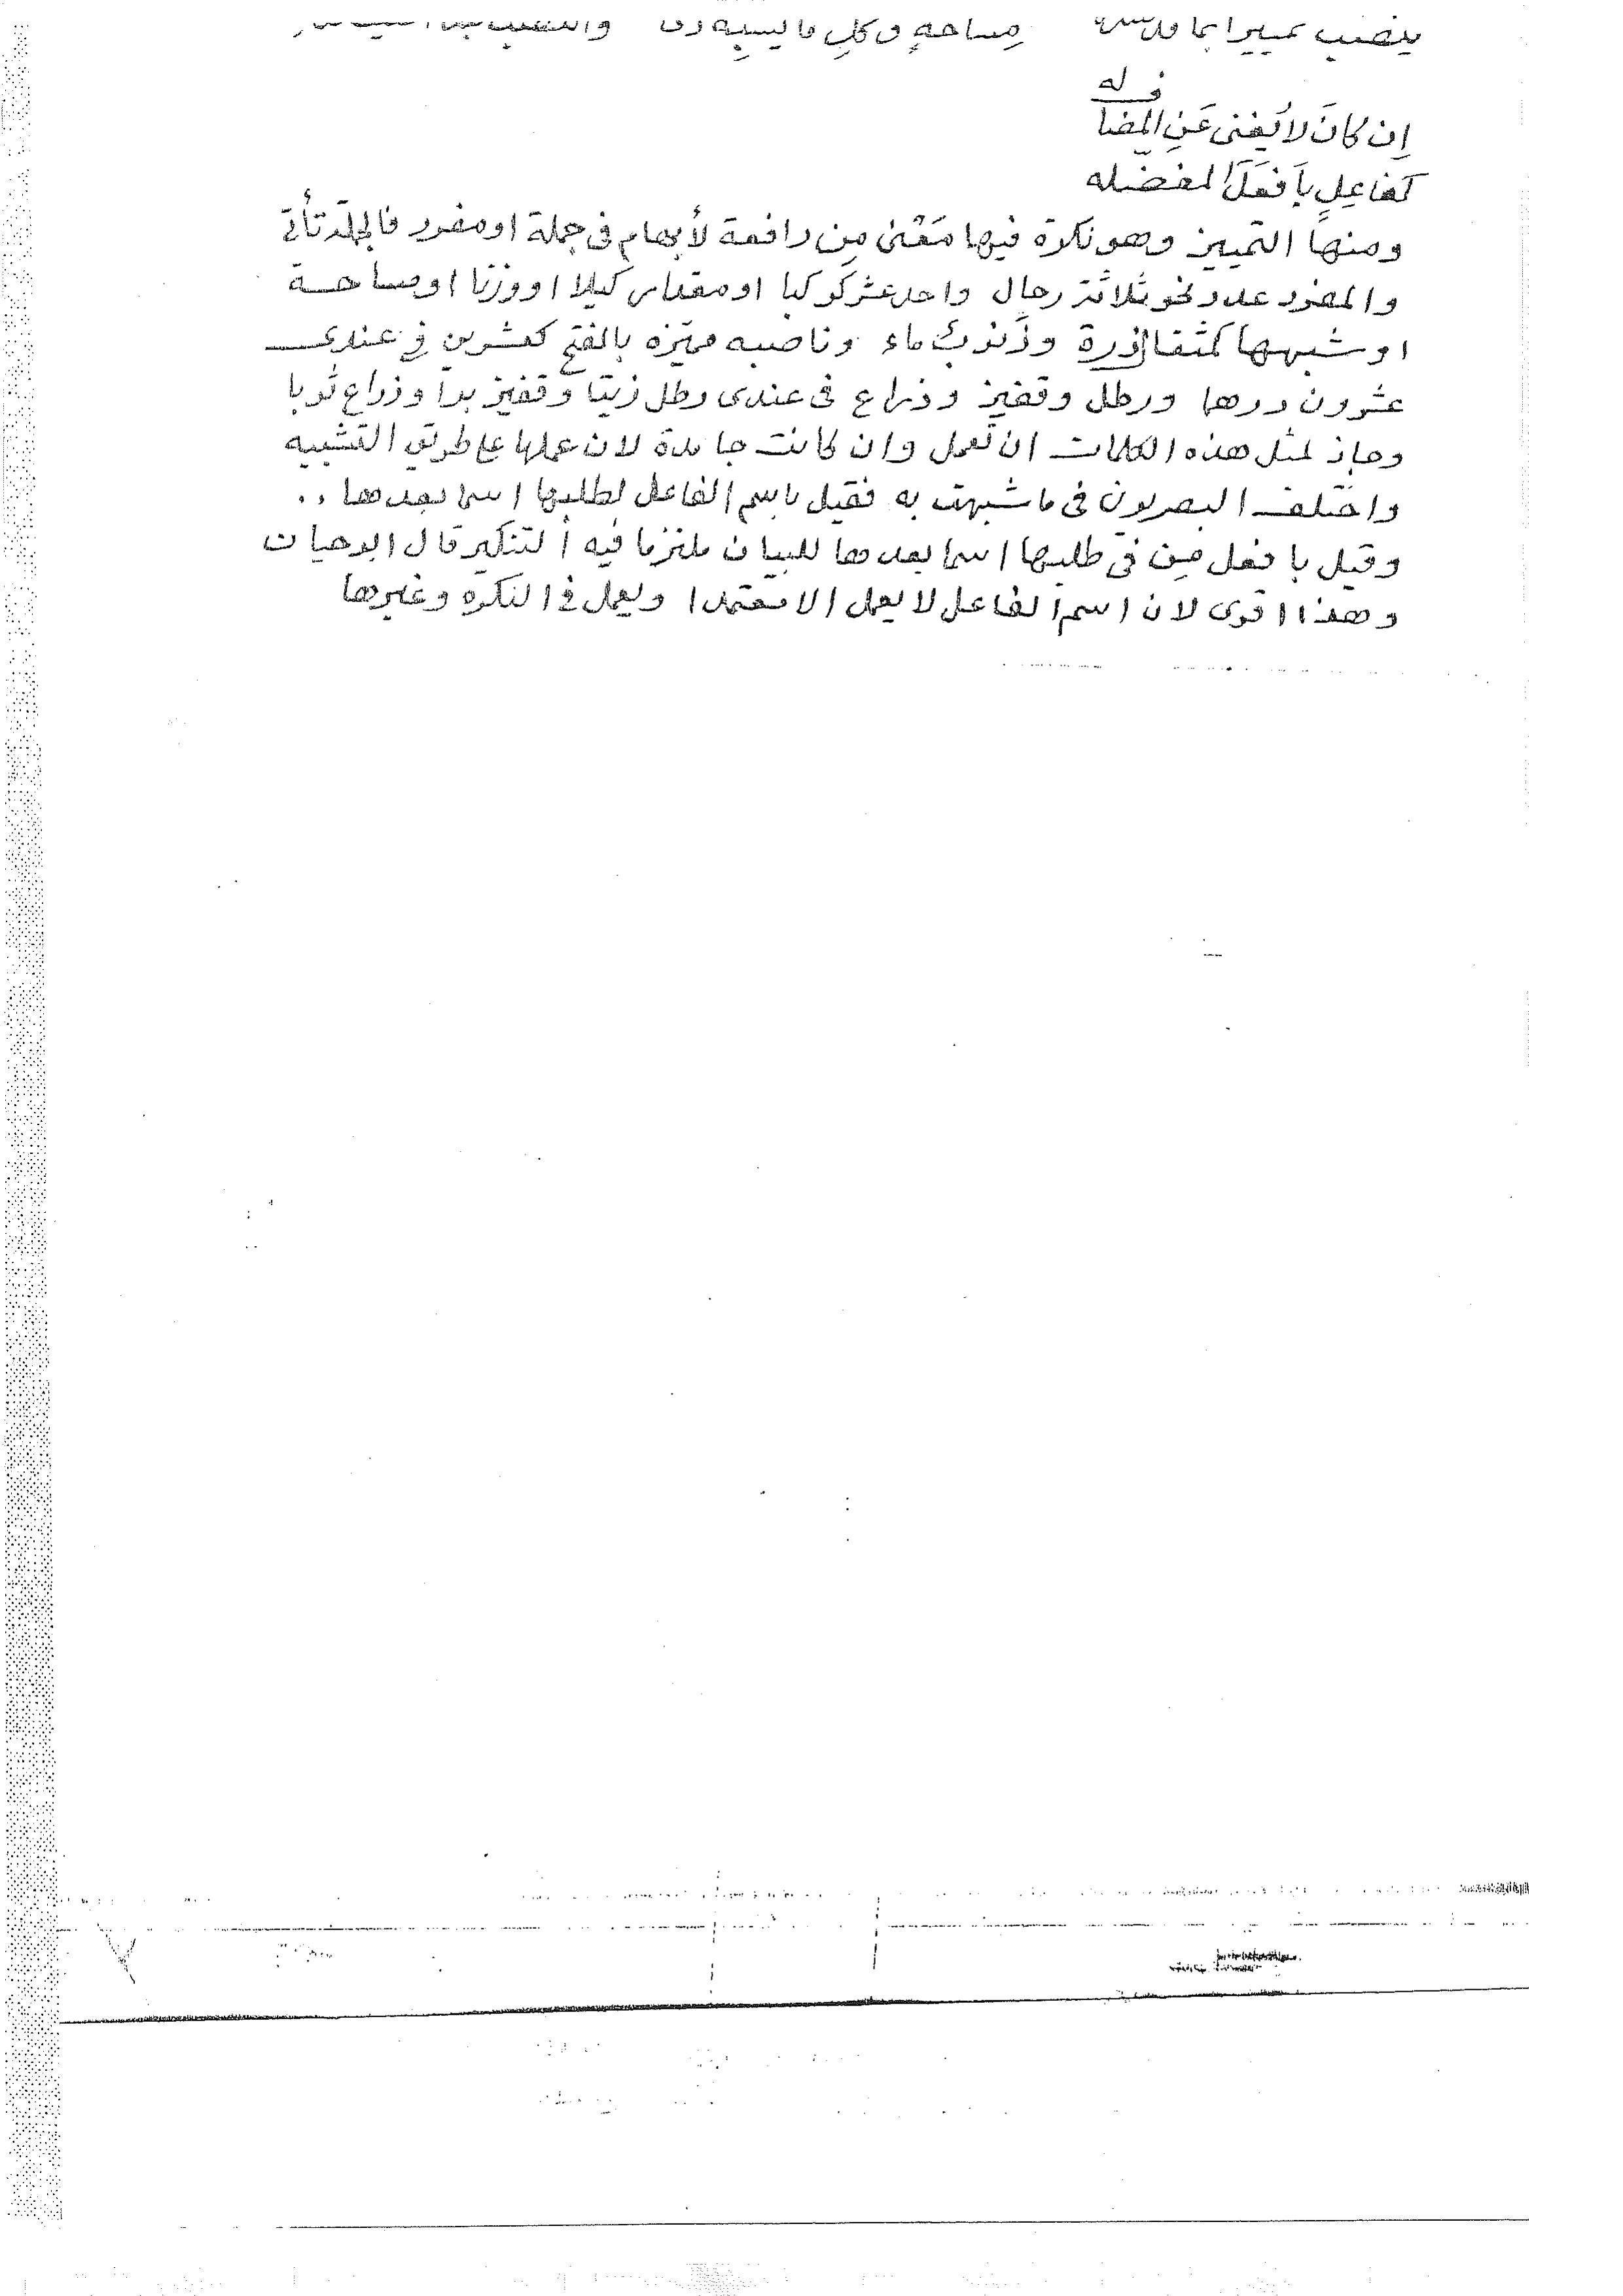 ينصب تمييرا بما مساحةٍ وكلِ ما ليسبِه
إن كانَ لا يُغنى عَنِ المُضا
ف له
كفاعِلٍ بأفعَلَ المفضّله
ومنها التمييز وهو نكرة فيها مَعْنى مِن رافعة لأبهام فى جملة او مفرد فالجملة تأتى
والمفرد عدد نحو ثلاثة رجال واحد عشر كوكبا او مقدار كيلا او وزنا او مساحة
او شبهها كمثقال ذرة وذَنوب ماء وناصبه مميّزه بالفتح كعشرين فى عندى
عشرون درهما ورطل وقفيز وذراع فى عندى رطل زيتا وقفيز برا وذراع ثوبا
وجاز لمثل هذه الكلمات ان تعمل وان كانت جامدة لان عملها على طريق التشبيه
واختلف البصريون فى ما شبهت به فقيل باسم الفاعل لطلبها اسما بعدها ..
وقيل بافعل مِن فى طلبها اسما بعدها للبيان ملتزما فيه التنكير قال ابو حيان
وهذا اقوى لان اسم الفاعل لا يعمل الا معتمدا ويعمل فى النكرة وغيرها